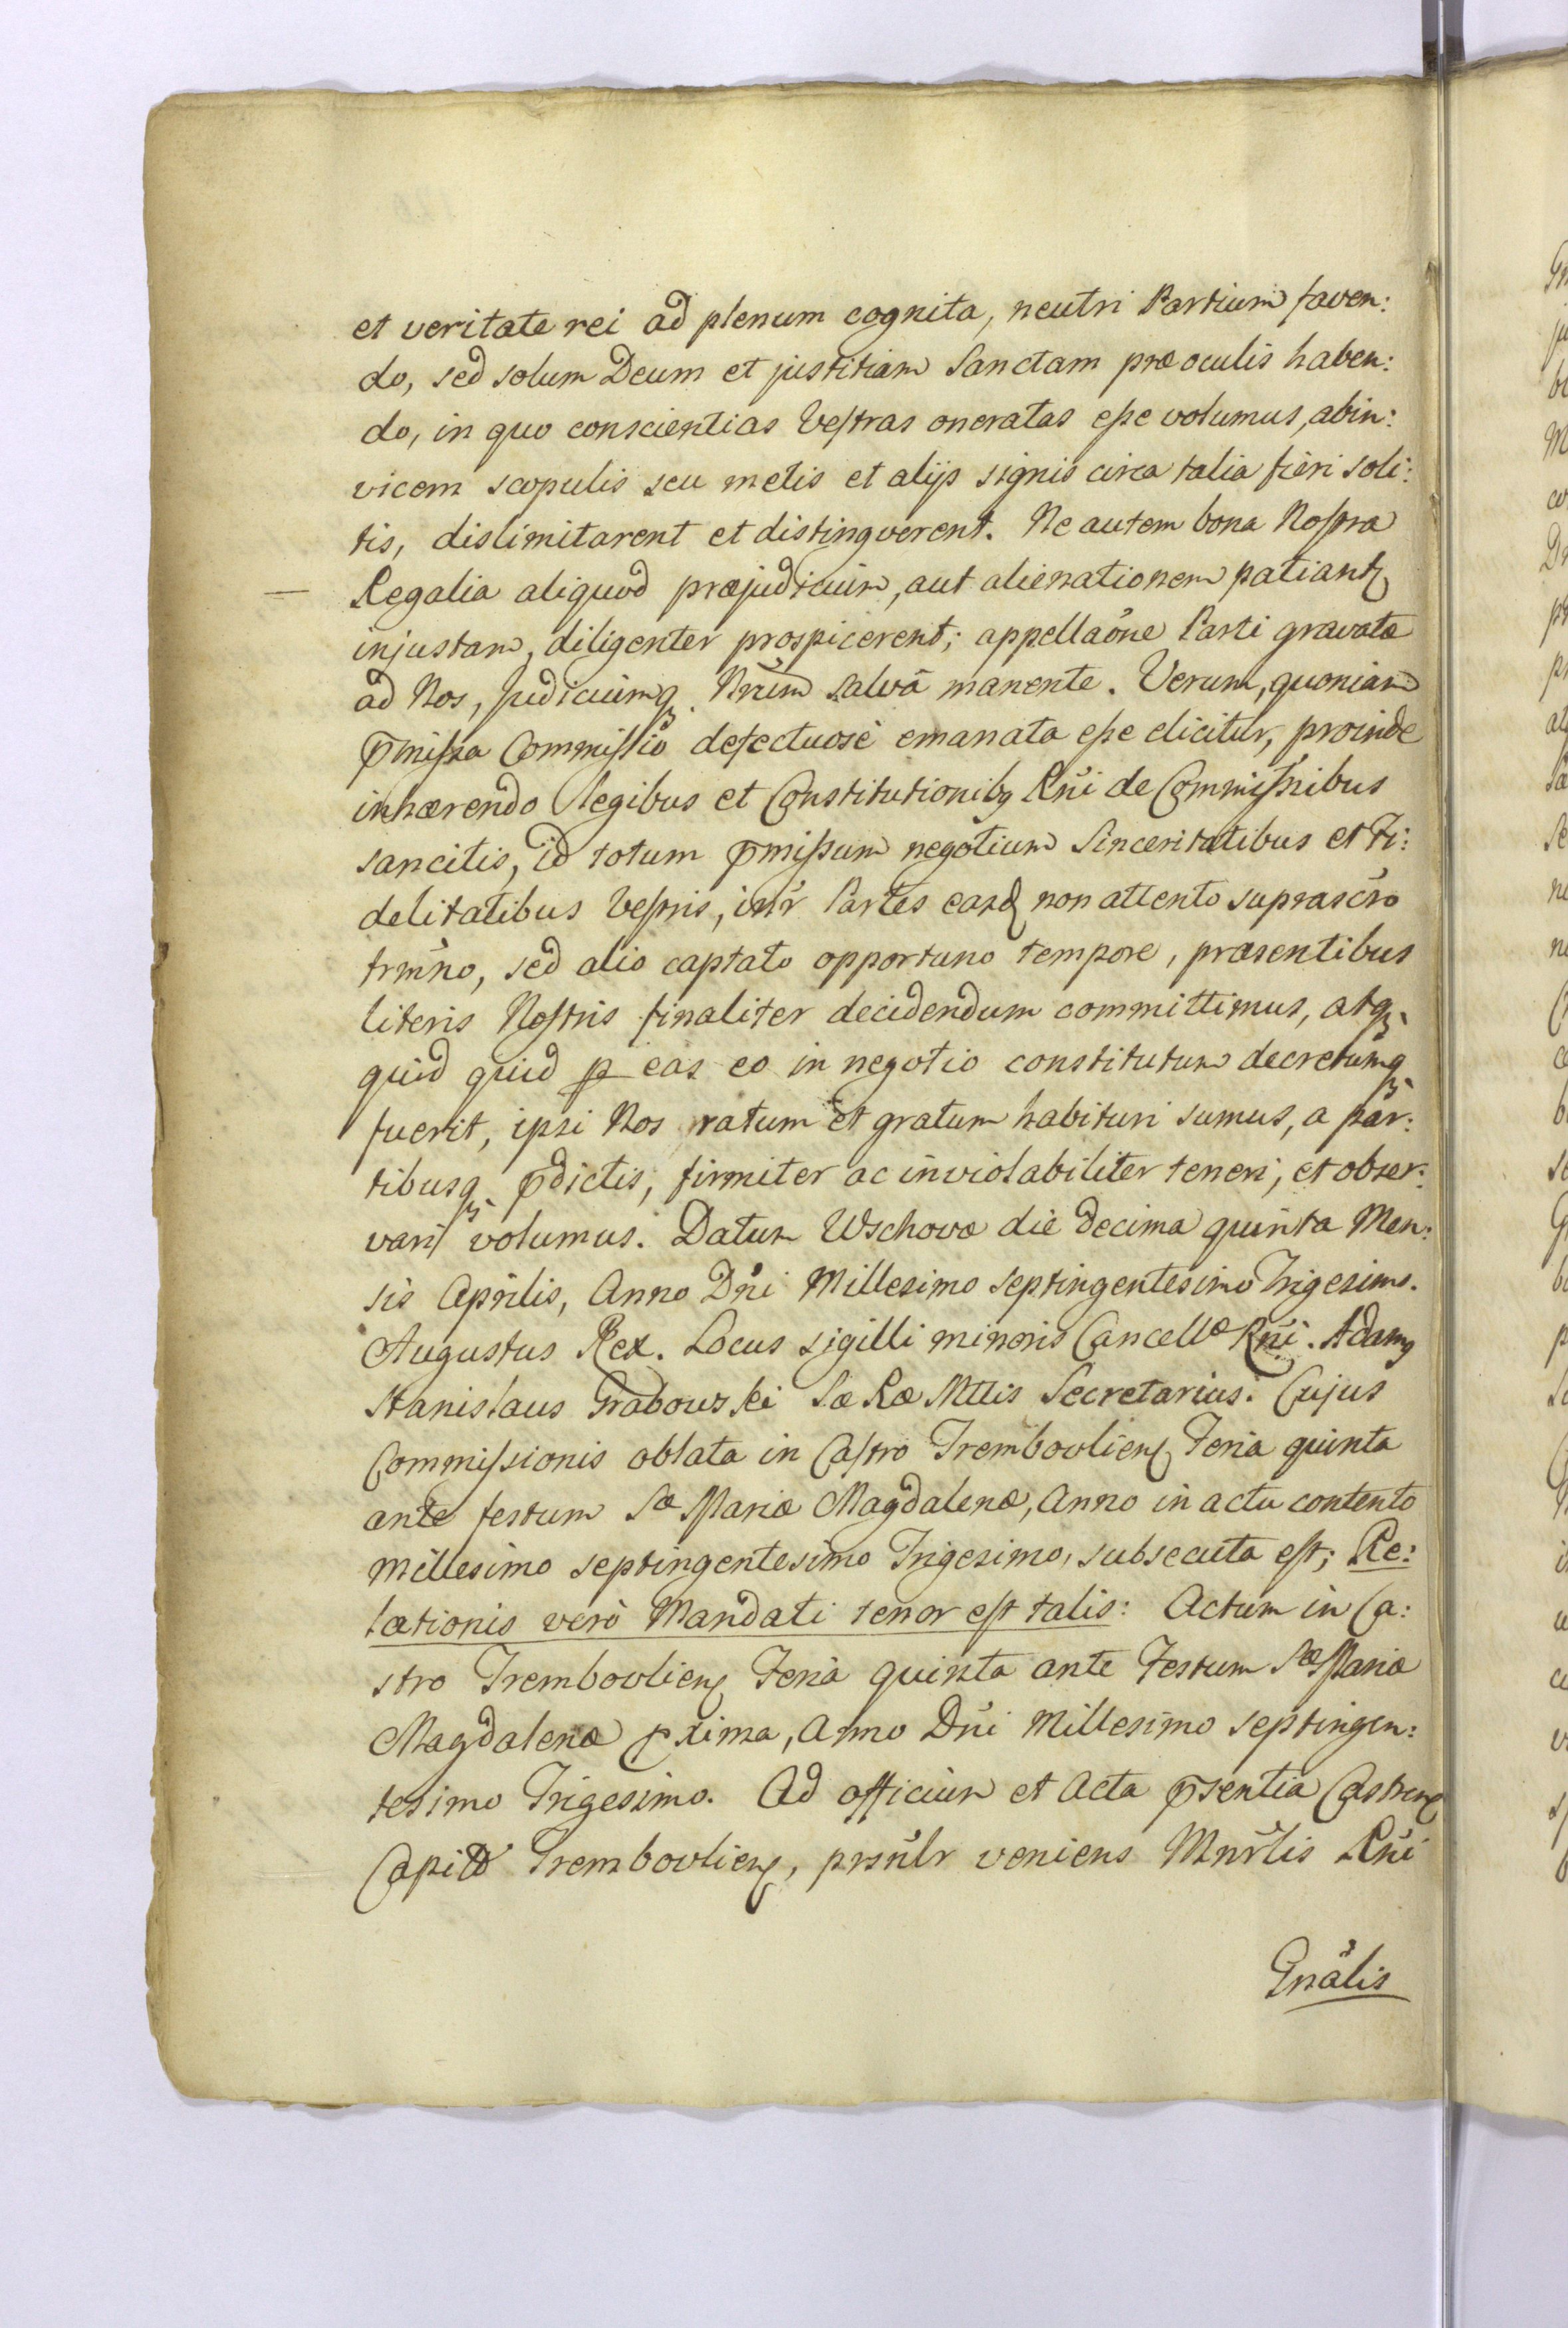 et veritate rei ad plenum cognita, neutri Partium faven:
do, sed solum Deum et justitiam Sanctam præ oculis haben:
do, in quo conscientias Vestras oneratas esse volumus, abin:
vicem scopulis seu metis et alijs signis circa talia fieri soli:
tis, dislimitarent et distingverent. Ne autem bona Nostra
Regalia aliquod præjudicium, aut alienationem patiantꝫ
injustam, diligenter prospicerent; appellaõne Parti gravatæ
ad Nos, Judiciumqꝫ Nrum salvâ manente. Verum, quoniam
p̄missa Commissio defectuosè emanata esse dicitur, proinde
inhærendo legibus et Constitutionibꝫ Rñi de Commissñibus
sancitis, id totum p̄missum negotium Sinceritatibus et Fi:
delitatibus Vestris, intr̃ Partes easdꝫ non attento suprascr̃o
trmño, sed alio captato opportuno tempore, præsentibus
literis Nostris finaliter decidendum committimus, atqꝫ
quid quid ꝑ eas eo in negotio constitutum decretumqꝫ
fuerit, ipsi Nos ratum et gratum habituri sumus, a par:
tibusqꝫ p̄dictis, firmiter ac inviolabiliter teneri, et obser:
vari volumus. Datum Wschovæ die decima quinta Men:
sis Aprilis, Anno Dñi Millesimo septingentesimo Trigesimo.
Augustus Rex. Locus sigilli minoris Cancellæ Rñi. Adamꝫ
Stanislaus Grabowski Sæ Ræ Mttis Secretarius. Cujus
Commissionis oblata in Castro Trembovlienꝫ Feria quinta
ante festum Sæ Mariæ Magdalenæ, Anno in actu contento
millesimo septingentesimo Trigesimo, subsecuta est; Re:
lationis verò Mandati tenor est talis: Actum in Ca:
stro Trembovlienꝫ Feria quinta ante Festum Sæ Mariæ
Magdalenæ pxima, Anno Dñi Millesimo septingen:
tesimo Trigesimo. Ad officium et Acta p̄sentia Castrenꝫ
Capitt Trembovlienꝫ, prsñlr veniens Mnr̃lis Rñi
Gnãlis